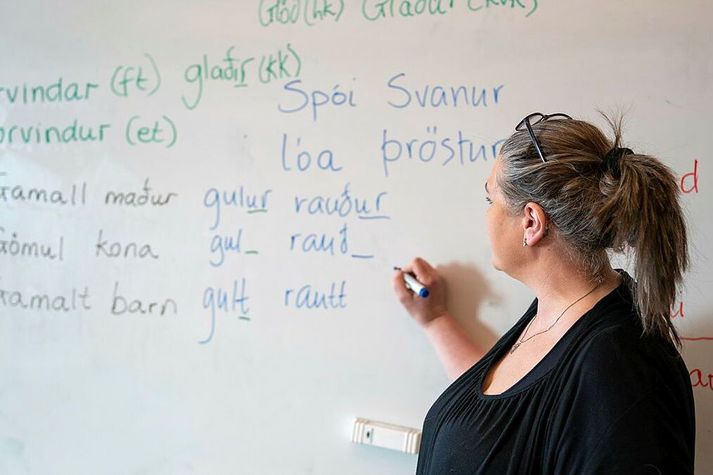 Glöð (hk) Glaður (kvk)
rvindar (ft) glaðir (kk)
Spói Svanur
orvindur (et)
lóa þröstur
Gamall maður gulur rauður
Gömul kona gul_ rauð_
Gamalt barn gult rautt